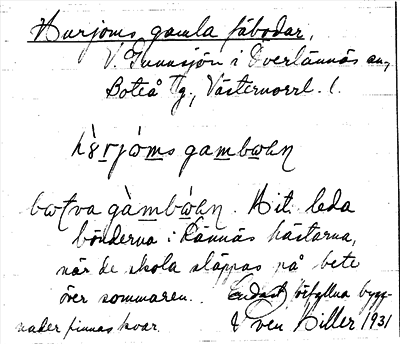 Hurjoms gamla fäbodar,
V. Gunnsjön i Överlännäs sn,
Boteå tg., Västernorrl. l.
gambωlen
bωtva gàmbὼlen. Hit leda
bönderna i Rännäs hästarna,
när de skola släppas på bete
över sommaren. Endast förfallna bygg-
nader finnas kvar. Sven Hiller 1931